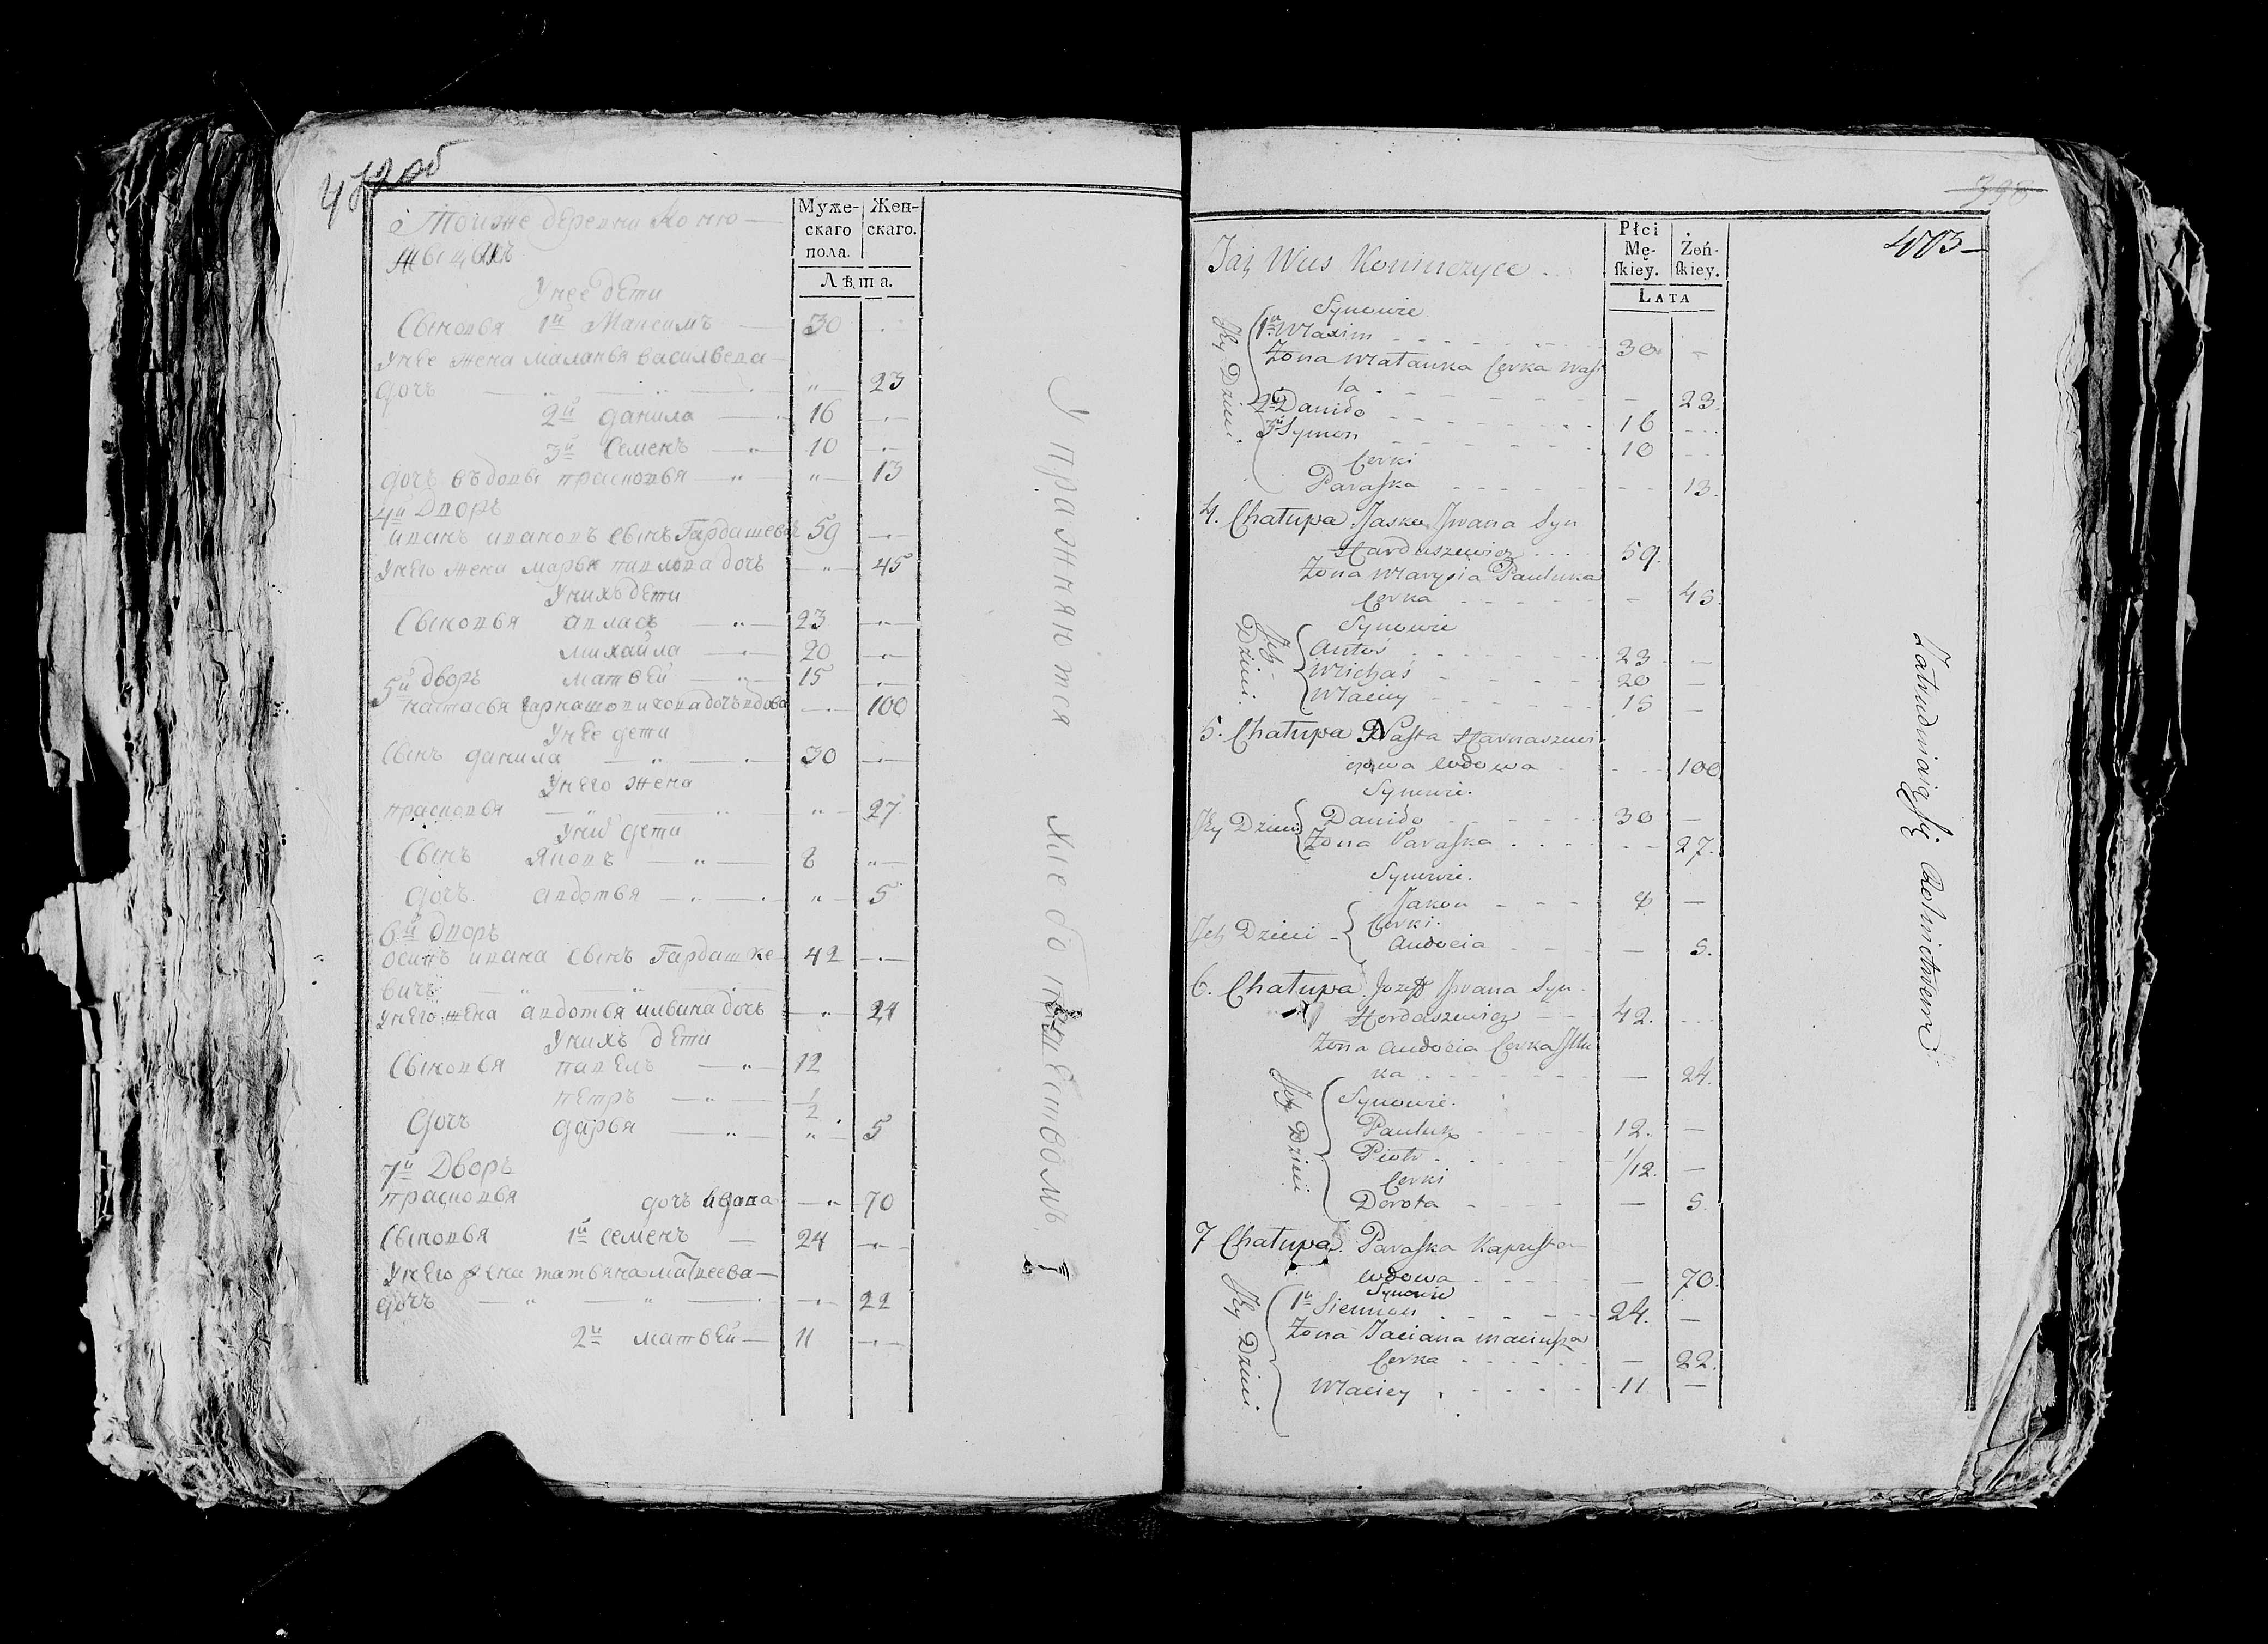 472 об
в Той же деревни Коню-
жыцахъ
Муже-
скаго
пола.
Жен-
скаго.
Лѣта.
У нее дети
Сыновья 1й Максимъ — 30 —
У нее жена Маланья Василвева
дочъ — „ — 23
2й данила — 16 —
3й Семенъ — 10 —
дочъ въдовы прасковья — „ — 13
4й Дворъ
иванъ ивановъ сынъ Гардашевичъ 59 —
У него жена марья павлова дочъ — 45
У нихъ дети
Сыновья авласъ — 23 —
михайла — 20 —
5й дворъ матвей — 15 —
настасья Гарнашовичова дочъ вдова — 100
У нее дети
Сынъ данила — 30 —
У него жена
прасковья — „ — 27
У них дети
Сынъ Яковъ — 8 „
дочъ авдотья — „ — 5
6й дворъ
осипъ ивана сынъ Гардашке- 42 —
вичъ
У него жена авдотья ильина дочъ — 24
У нихъ дети
Сыновья павелъ — 12
петръ — 1/2
дочъ дарья — „ — 5
7й Дворъ
прасковья дочъ ивана — 70
Сыновья 1й семенъ — 24 —
У него жена татьяна матвеева —
дочъ — 22
2й матвей — 11 —
Упражняются хлебопашествомъ
398
473
Taż Wieś Koniuczyce
Płci
Mę-
ſkiey.
Żeń-
ſkiey.
LATA
Jey Dzieci.
Synowie
1й Maxim
Żona Małanka Corka Waſi 30 —
la — 23.
2й Daniło 16
3й Symon 10
Corki
Paraſka 13.
4. Chałupa Jasko Jwana Syn
Hardaszewicz 59.
Żona Marysia Pauluka
Corka — 45.
Ich Dzieci.
Synowie
Antoś 23 —
Michaś 20 —
Maciey 15 —
5. Chałupa Naſta Harnaszewi
czowa wdowa 100
Synowie.
Jey Dzieci Daniło 30 —
Żona Paraſka 27.
Synowie.
Jakow 8 —
Ich Dzieci Corki.
Audocia — 5.
6. Chałupa Jozef Jwana Syn
Herdaszewicz 42.
Żona Audocia Corka Jllu
ka — 24.
Ich Dzieci
Synowie.
Pauluk 12. —
Piotr 1/12. —
Corki
Dorota — 5.
7 Chałupa. Paraſka Kapuſta
wdowa — 70.
Synowie
Jey Dzieci.
1й Siemion 24. —
Żona Taciana Maciuſza
Corka — 22.
Maciey 11 —
Zatrudniaią ſię Rolnictwem